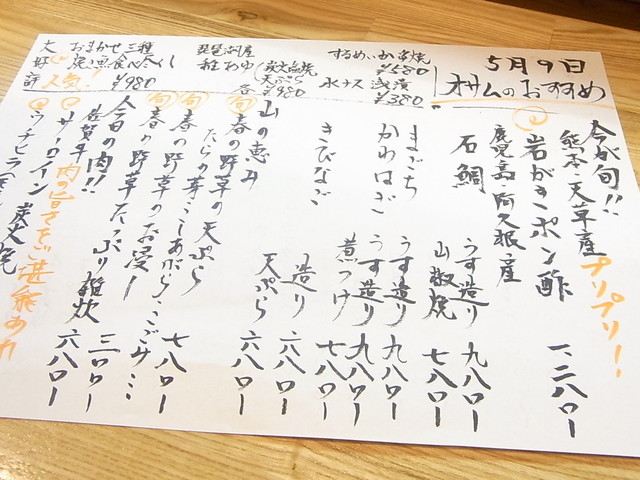 5月9日
オサムのおすすめ
するめいか串焼
¥580
水ナス 浅漬
¥380
琵琶湖産
稚あゆ(炭火塩焼
天ぷら
各¥980
大好評
おまかせ三種
焼魚食べ尽くし
人気! ¥980
今が旬!!
熊本・天草産 プリプリー!
岩がきポン酢 一、二八〇ー
鹿児島・阿久根産
石鯛 うす造り 九八〇ー
山椒焼 七八〇ー
まごち うす造り 九八〇ー
かわはぎ うす造り 九八〇ー
煮つけ 七八〇ー
きびなご 造り 六八〇ー
天ぷら 六八〇ー
山の恵み
旬 春の野草の天ぷら
旬 たらの芽・こしあぶら・こごみ・・・
旬 春の野草のお浸し 七八〇ー
今日の肉!!
佐賀牛 たっぷり雑炊
サーロイン 炭火焼
肉の旨さをご堪能あれ
ウチヒラ
六八〇ー